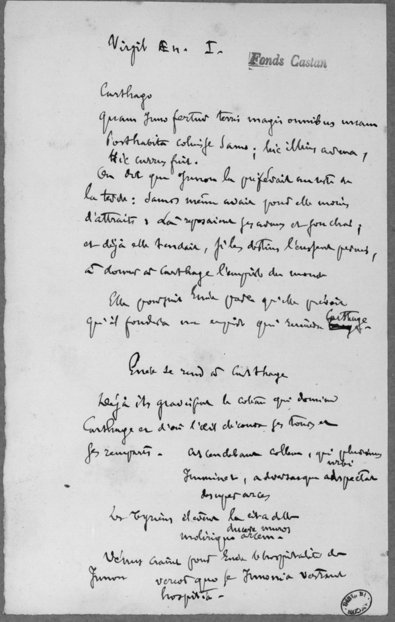 Virgil Æn. I.
Fonds Castan
Carthago
quam Juno fertur terris magis omnibus unam
Posthabita coluisse Samo ; hic illius arma,
Hic currus fuit.
On dit que Junon la préférait au reste de
la terre : Samos même avait pour elle moins
d'attraits : Là reposaient ses armes et son char ;
et déjà elle tendait, si les destins l'eussent permis,
à donner à Carthage l'empire du monde
Elle poursuit Enée parce qu'elle prévoit
qu'il fondera un empire qui ruinera Carthage
Enée se rend à Carthage
Déjà ils gravissent la colline qui domine
Carthage et d'où l'œil découvre ses tours et
ses remparts - ascendebant collem, qui plurimus
urbi
Imminet, adversasque adspectat
desuper arces
Les Tyriens élèvent la citadelle
ducere muros
molirique arcem
Vénus craint pour Enée l'hospitalité de
Junon veretur quo se Junonia vertant
hospitia -